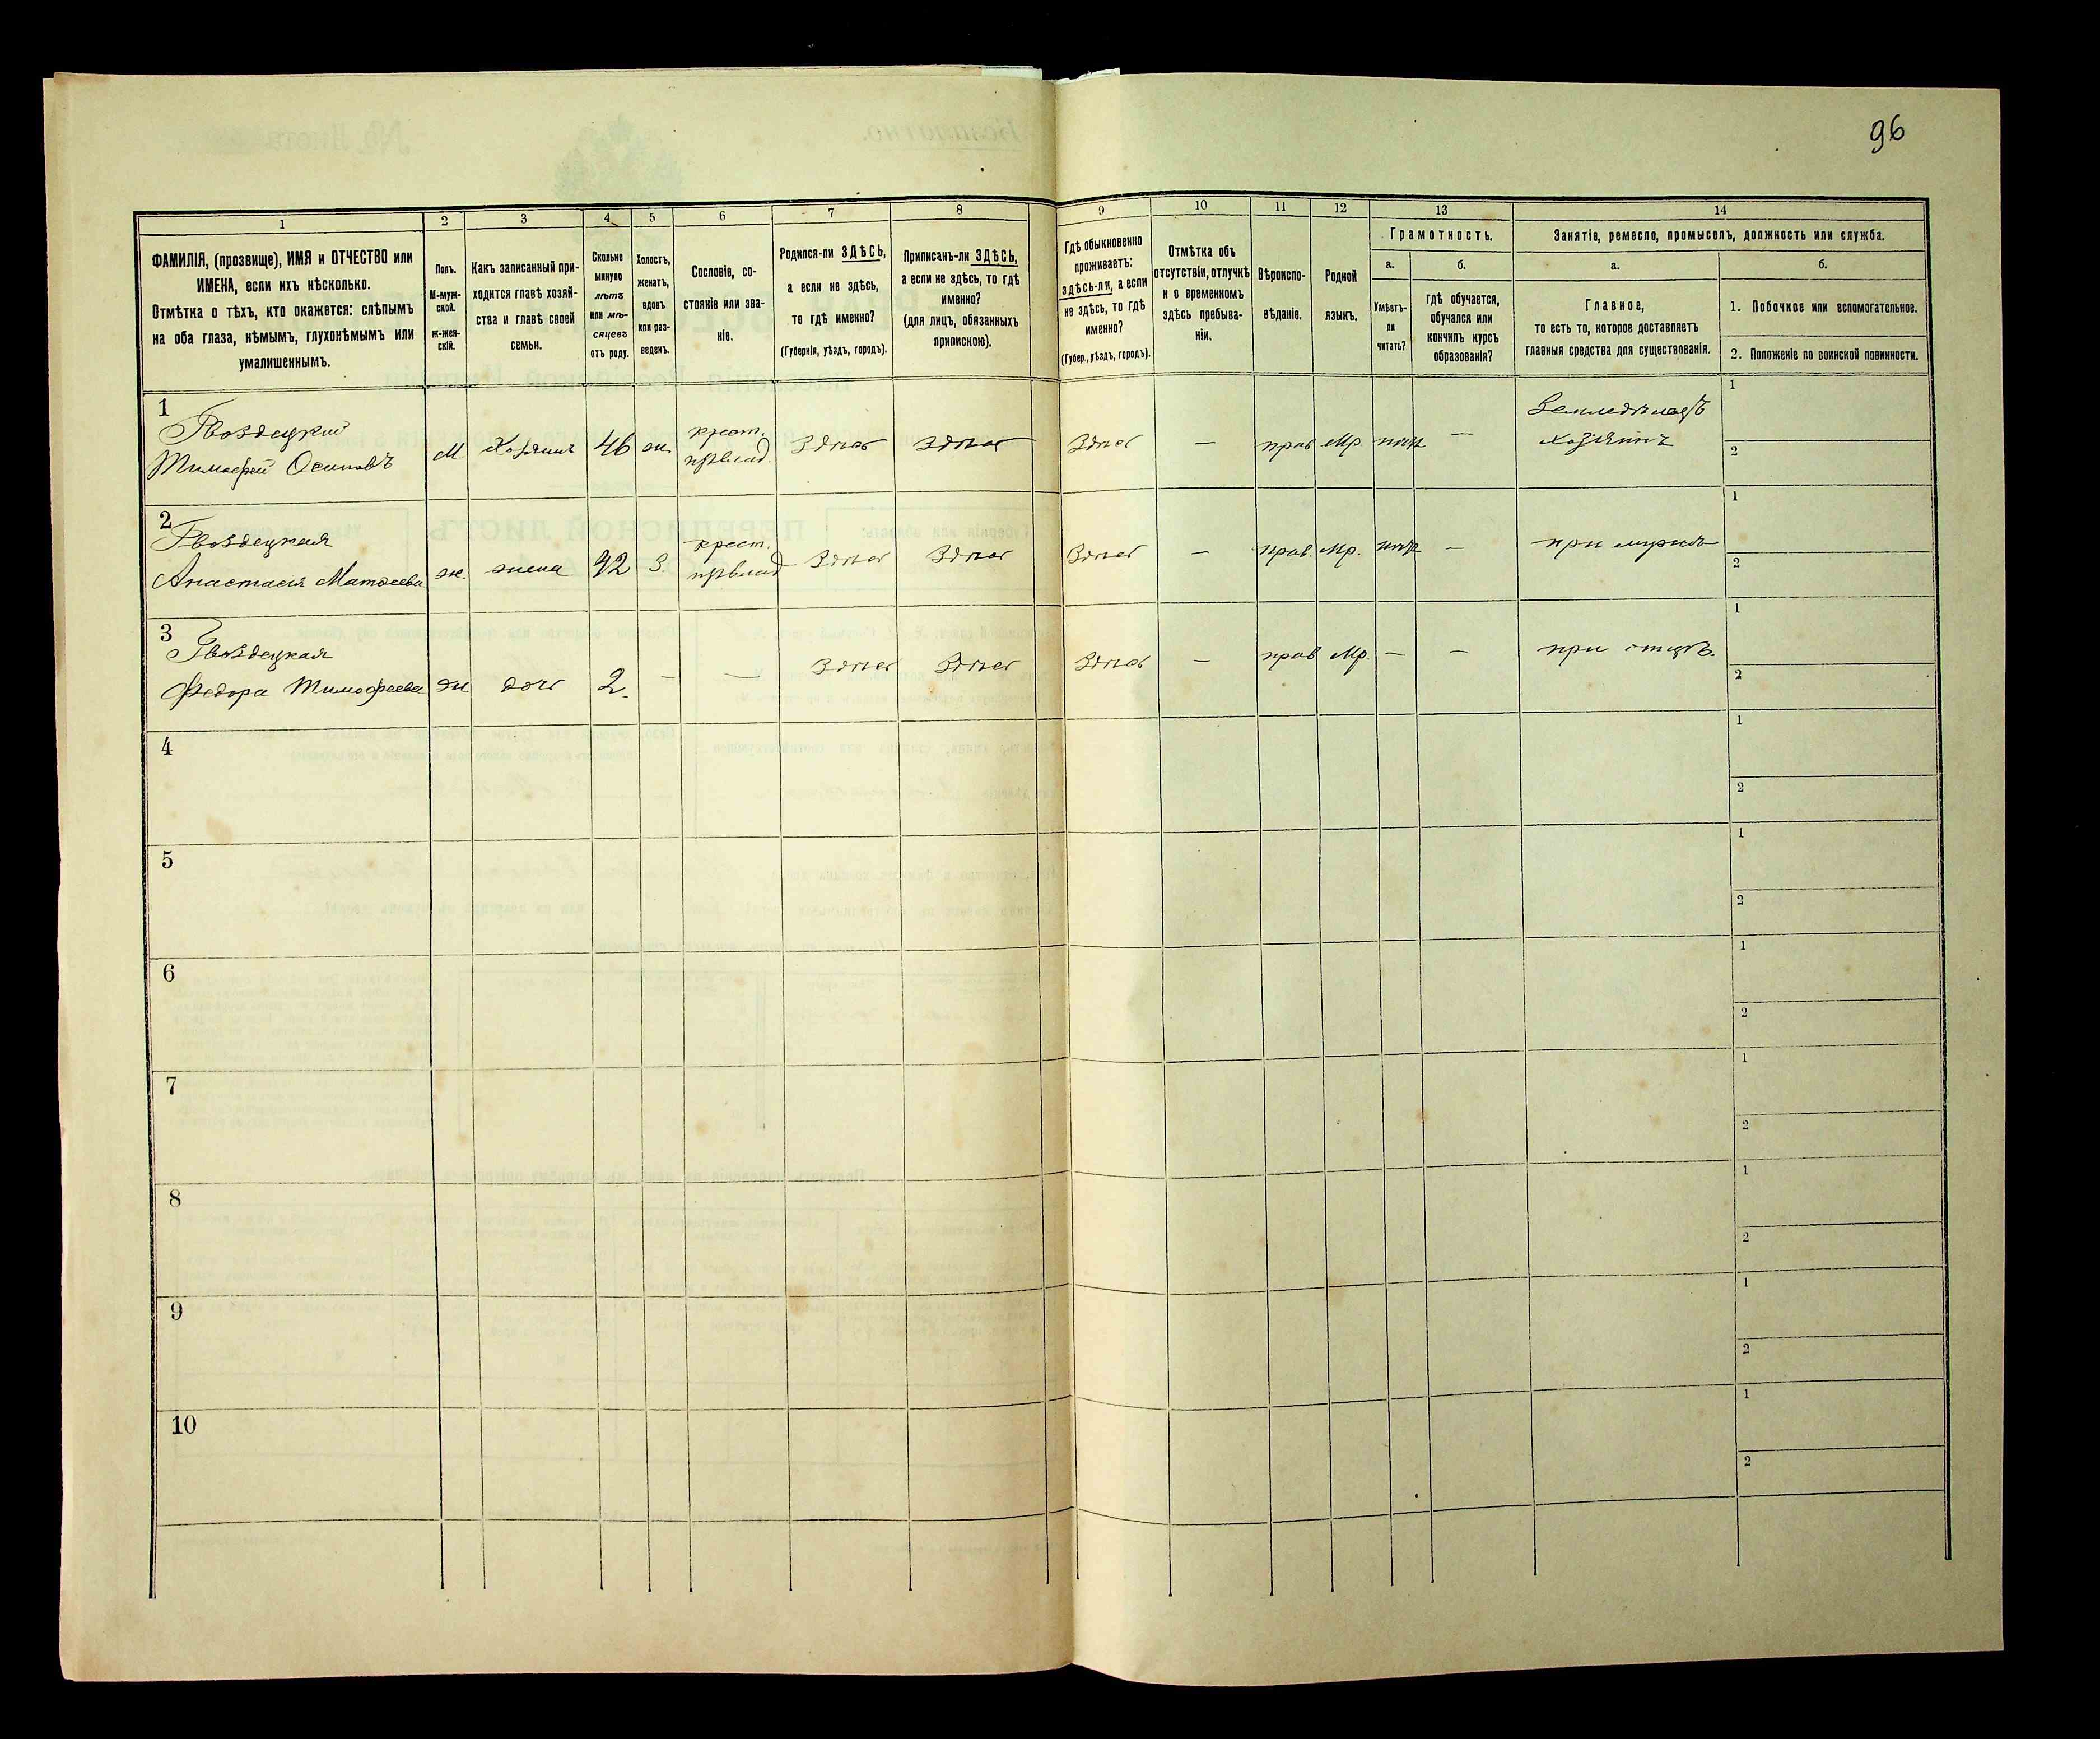 96
1 2 3 4 5 6 7 8 9 10 11 12 13 14
ФАМИЛІЯ, (прозвище), ИМЯ и ОТЧЕСТВО или
ИМЕНА, если ихъ нѣсколько.
Отмѣтка о тѣхъ, кто окажется: слѣпымъ
на оба глаза, нѣмымъ, глухонѣмымъ или
умалишеннымъ.
Полъ.
М-муж-
ской.
ж-жен-
скій.
Какъ записанный при-
ходится главѣ хозяй-
ства и главѣ своей
семьи.
Сколько
минуло
лѣтъ
или мѣ-
сяцевъ
отъ роду.
Холостъ,
женатъ,
вдовъ
или раз-
веденъ.
Сословіе, со-
стояніе или зва-
ніе.
Родился-ли ЗДѢСЬ,
а если не здѣсь,
то гдѣ именно?
(Губернія, уѣздъ, городъ).
Приписанъ-ли ЗДѢСЬ,
а если не здѣсь, то гдѣ
именно?
(для лицъ, обязанныхъ
припискою).
Гдѣ обыкновенно
проживаетъ:
здѣсь-ли, а если
не здѣсь, то гдѣ
именно?
(Губер., уѣздъ, городъ).
Отмѣтка объ
отсутствіи, отлучкѣ
и о временномъ
здѣсь пребыва-
ніи.
Вѣроиспо-
вѣданіе.
Родной
языкъ.
Грамотность.
а. б.
Умѣетъ-
ли
читать?
гдѣ обучается,
обучался или
кончилъ курсъ
образованія?
Занятіе, ремесло, промыселъ, должность или служба.
а. б.
Главное,
то есть то, которое доставляетъ
главныя средства для существованія.
1. Побочное или вспомогательное.
2. Положеніе по воинской повинности.
1
Гвоздецкий
Тимофей Осиповъ
М
Хозяинъ
46
ж.
крест.
Здѣсь
Здѣсь
Здѣсь
—
прав
Мр.
—
Земледѣлецъ
хозяинъ
1
2
2
Гвоздецкая
Анастасія Матвеева
ж.
жена
42
З.
крест.
Здѣсь
Здѣсь
Здѣсь
—
прав.
Мр.
—
при мужѣ
1
2
3
Гвоздецкая
Федора Тимофеева
ж
дочь
2.
—
—
Здѣсь
Здѣсь
Здѣсь
—
прав
Мр.
—
—
при отцѣ.
1
2
4
1
2
5
1
2
6
1
2
7
1
2
8
1
2
9
1
2
10
1
2